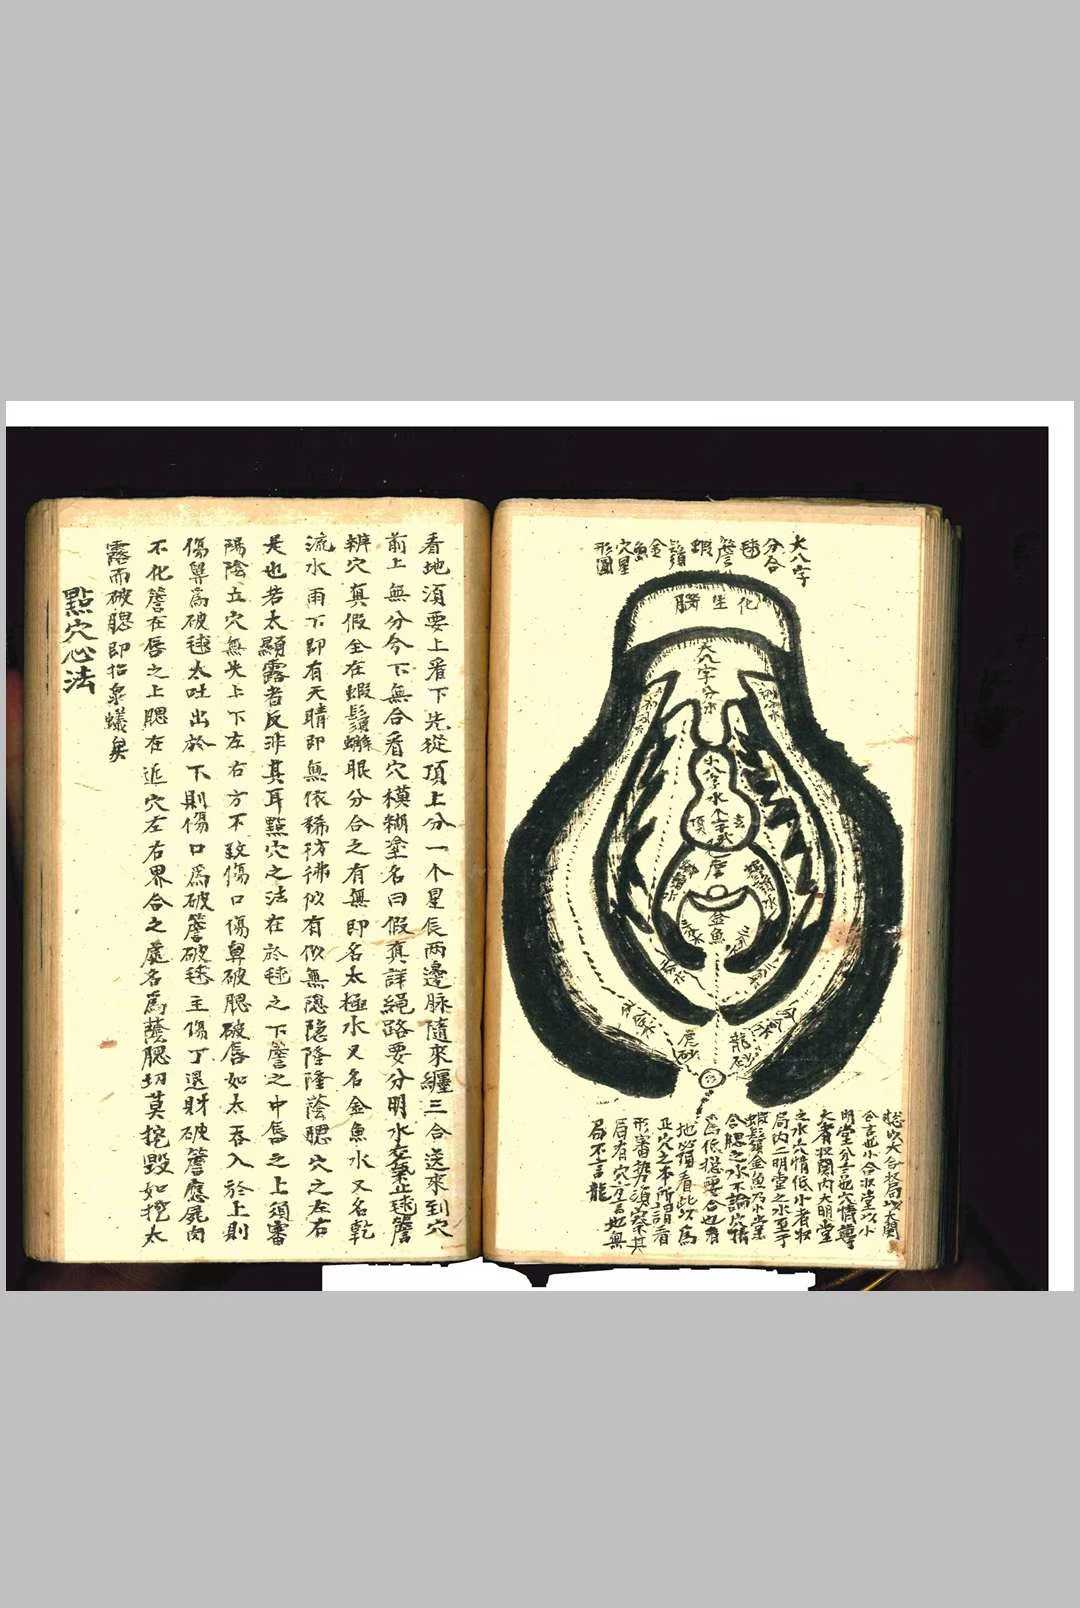 大八字
分合
毬
簷
蝦
鬚
金
魚
穴星
形圖
化生腦
大八字分水
小八字水
玄
頂
簷
金魚
龍砂
虎砂
明堂分言也穴情薄
大者收關內大明堂
之水穴情低小者收
局內二明堂之水至于
蝦鬚金魚乃小
合腮之水不論穴情
高低揔要合也看
地必須看此以爲
正穴之本所謂看
形審勢須察其
局有穴方言地無
局不言龍
看地須要上看下先從頂上分一个星辰兩邊脉隨來纏三合送來到穴
前上無分今下無合看穴模糊塗名曰假真詳繩路要分明水交氣止毬簷
辨穴真假全在蝦鬚蠏眼分合之有無即名太極水又名金魚水又名乾
流水雨下即有天晴即無依稀彷彿似有似無隱隱隆隆蔭腮穴之左右
是也若太顯露者反非其耳點穴之法在於毬之下簷之中唇之上須審
陽陰五穴無失上下左右方不致傷口傷鼻破腮破唇如太吞入於上則
傷鼻爲破毬太吐出於下則傷口爲破簷破毬主傷丁退財破簷應屍肉
不化簷在唇之上腮在近穴左右界合之處名爲蔭腮切莫挖毀如挖太
露而破腮即招泉蟻矣
點穴心法